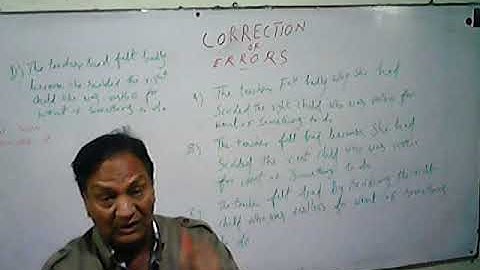 CORRECTION
OF
ERRORS
D) The teacher had felt badly
because she scolded the right
child who was restless for
want of something to do.
A) The teacher felt badly she had
scolded the right child who was restless for
want of something to do.
B) The teacher felt bad because she had
scolded the right child who was restless
for want of something to do.
C) The teacher felt bad by scolding the right
child who was restless for want of something
to do.